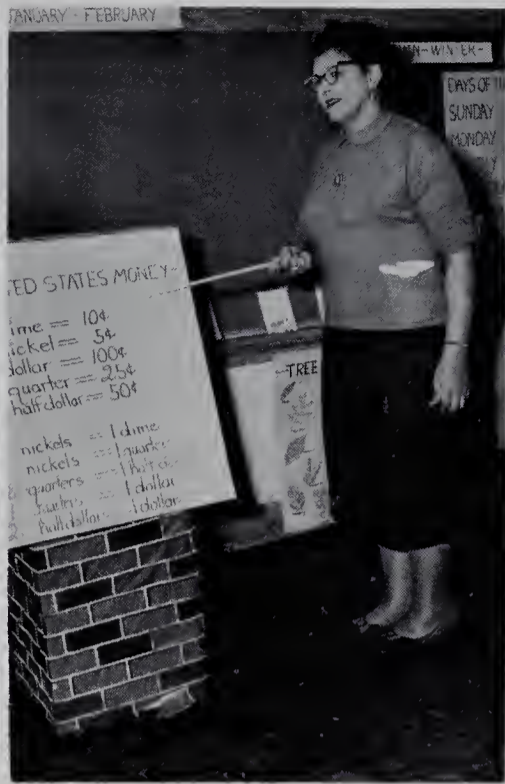 JANUARY - FEBRUARY
-WINTER-
DAYS OF
SUNDAY
MONDAY
TED STATES MONEY-
ime == 10¢
ickel == 5¢
dollar == 100¢
quarter == 25¢
half dollar == 50¢
nickels == 1 dime
nickels == 1 quarter
quarters == 1 half
== 1 dollar
half dollars 1 dollar
TREE